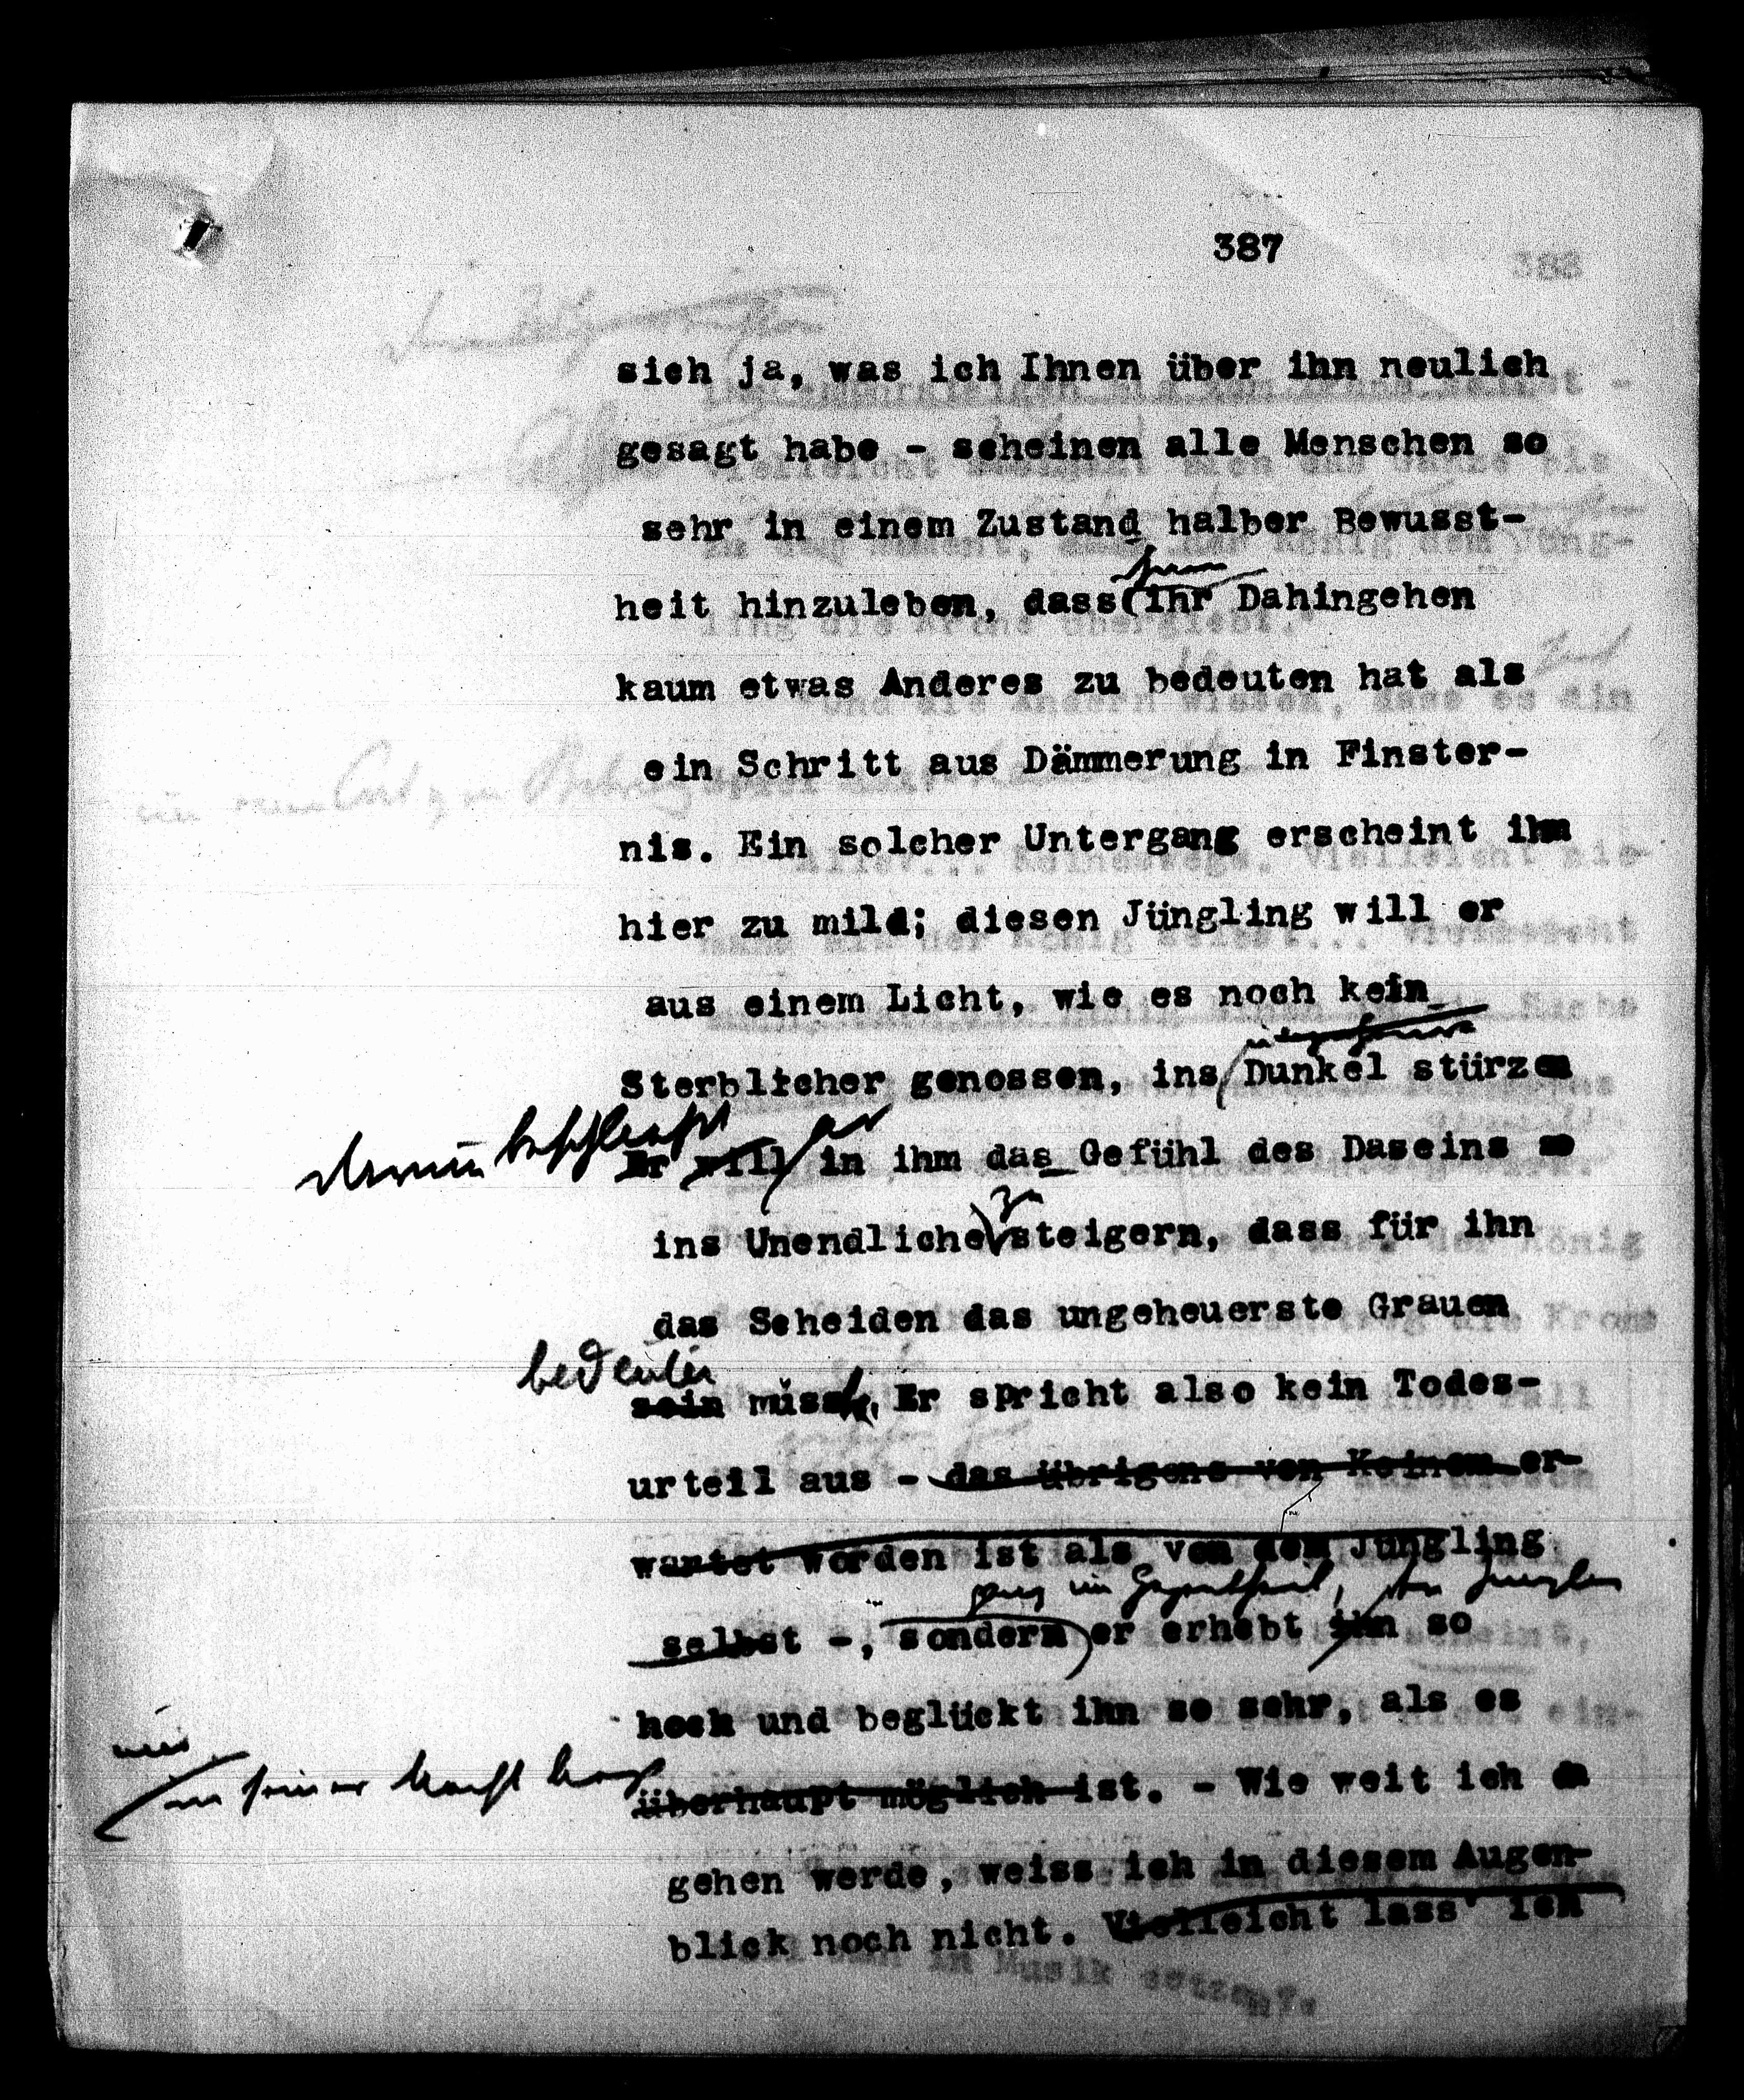 387
sich ja, was ich Ihnen über ihn neulich
gesagt habe - scheinen alle Menschen so
sehr in einem Zustand halber Bewusst-
heit hinzuleben, dass (ihr Dahingehen
kaum etwas Anderes zu bedeuten hat als
ein Schritt aus Dämmerung in Finster-
nis. Ein solcher Untergang erscheint ihm
hier zu mild; diesen Jüngling will er
aus einem Licht, wie es noch kein
Sterblicher genossen, ins Dunkel stürzen
darum beschliesst er
Er will in ihm das Gefühl des Daseins so
zu
ins Unendliche steigern, dass für ihn
das Scheiden das ungeheuerste Grauen
bedeuten
sein müsste. Er spricht also kein Todes-
urteil aus - das übrigens von Keinem er-
wartet worden ist als von dem Jüngling
ganz im Gegentheil, den Jüngling
selbst -, sondern er erhebt ihn so
hoch und beglückt ihn so sehr, als es
nur
in seiner Macht
überhaupt möglich ist. - Wie weit ich da
gehen werde, weiss ich in diesem Augen-
blick noch nicht. Vielleicht lass' ich